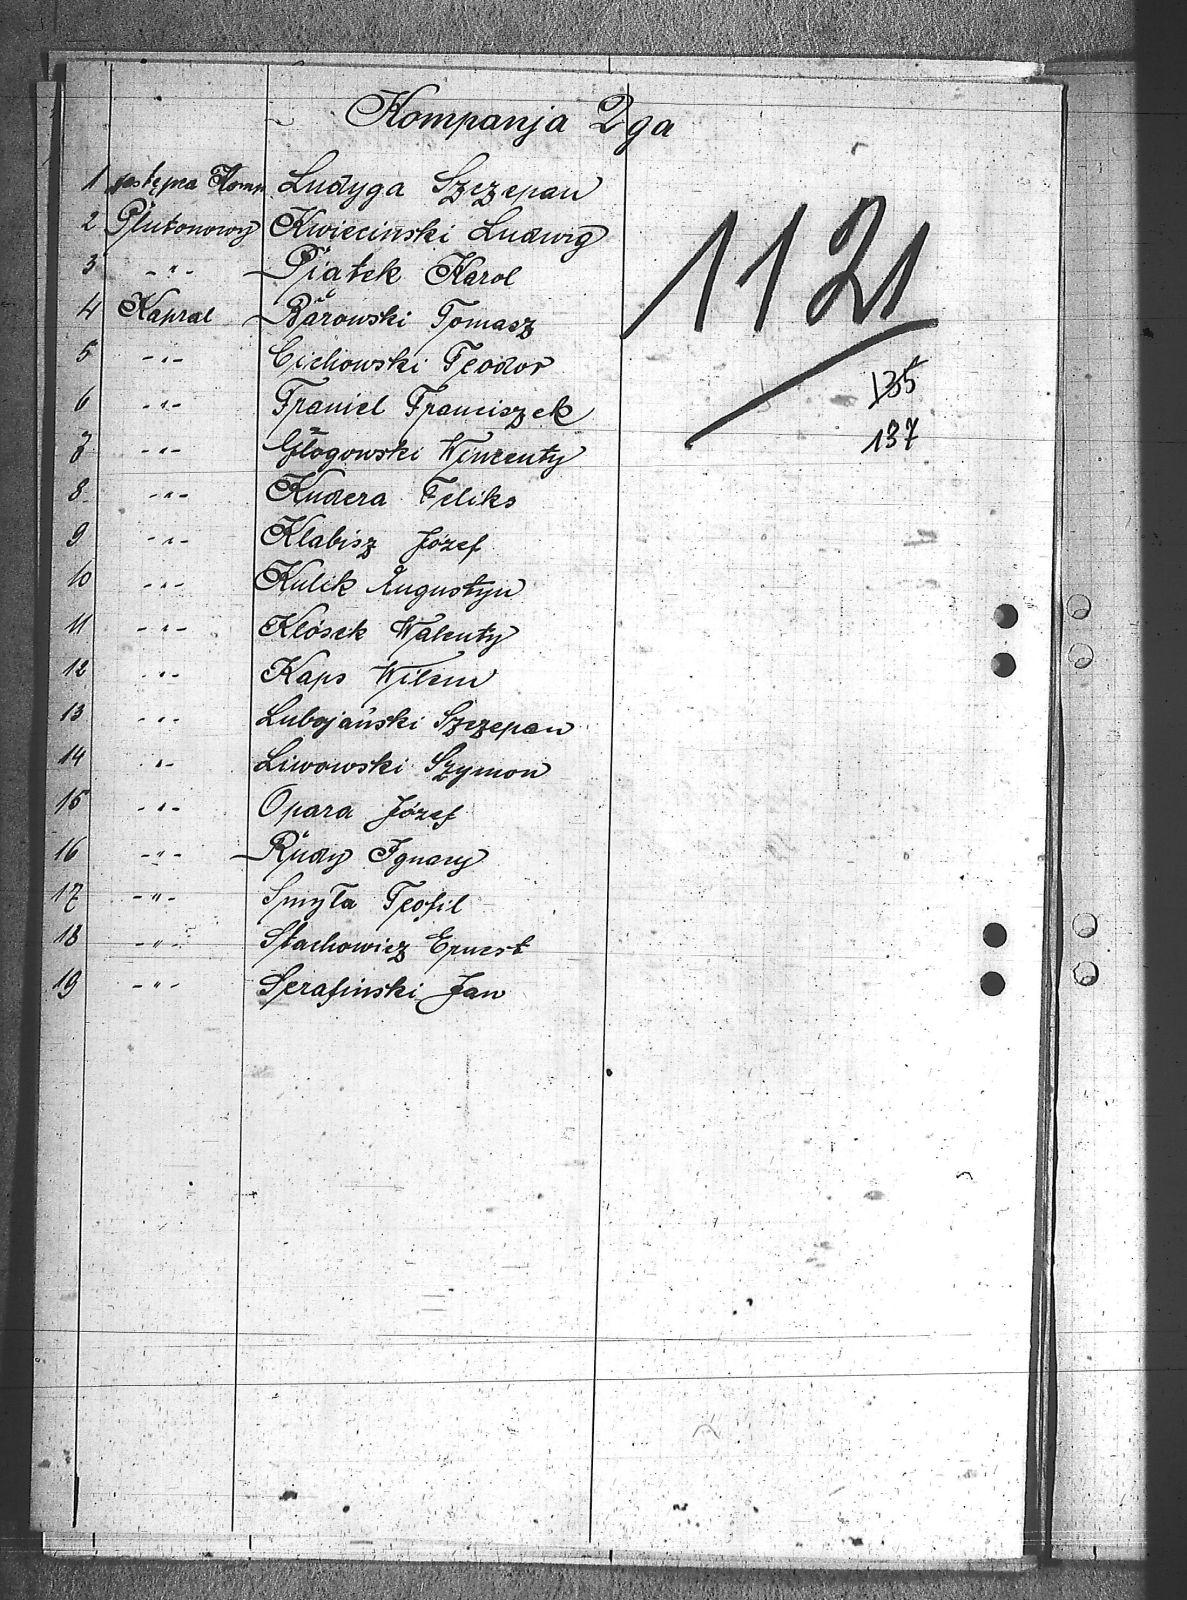 Kompanja 2ga
1 zastępca Komp Ludyga Szczepan
2 Plutonowy Kwieciński Ludwig
3 -"- Piątek Karol
4 Kapral Barowski Tomasz
5 -"- Cichowski Teodor
6 -"- Franiel Franciszek
7 -"- Głogowski Wincenty
8 -"- Kudera Feliks
9 -"- Klabisz Józef
10 -"- Kulik Augustyn
11 -"- Klósek Walenty
12 -"- Kaps Wilem
13 -"- Lubojański Szczepan
14 -"- Liwowski Szymon
15 -"- Opara Józef
16 -"- Rudy Ignacy
17 -"- Smyła Teofil
18 -"- Stachowicz Ernest
19 -"- Serafinski Jan
1121
135
137